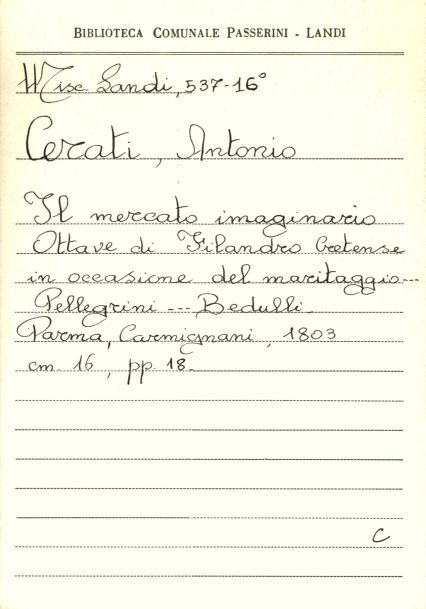 BIBLIOTECA COMUNALE PASSERINI - LANDI
Misc. Landi, 537-16°
Cerati, Antonio
Il mercato imaginario
Ottave di Filandro Cretense
in occasione del maritaggio---
Pellegrini --- Bedulli.
Parma, Carmignani, 1803
cm. 16, pp. 18.
C